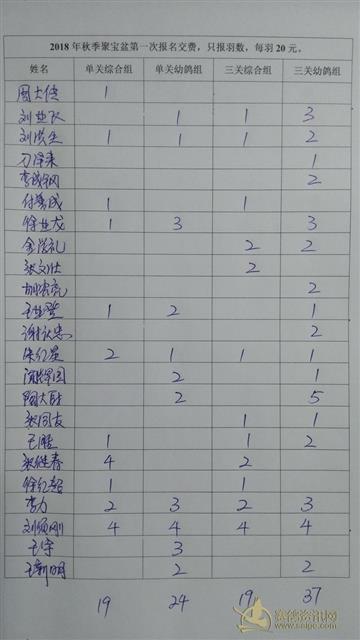 2018年秋季聚宝盆第一次报名交费，只报羽数，每羽20元。
姓名 单关综合组 单关幼鸽组 三关综合组 三关幼鸽组
周大侠 1
刘世队 1 1 3
刘洪生 1 1 1 2
刁泽来 1
李成钢 2
付善成 1 1
徐世龙 1 3 3
金学礼 2 2
张文壮 2
2
1 2 1
谢钦忠 2
朱红星 2 1 1 1
2 1
陶大财 2 5
张同友 1 1
王胜 1 1 2
张继春 4 2
徐红超 1 1
李力 2 3 2 3
刘颂刚 4 4 4 4
王宇 3
王新明 2 2
19 24 19 37
赛鸽资讯网
www.saige.com